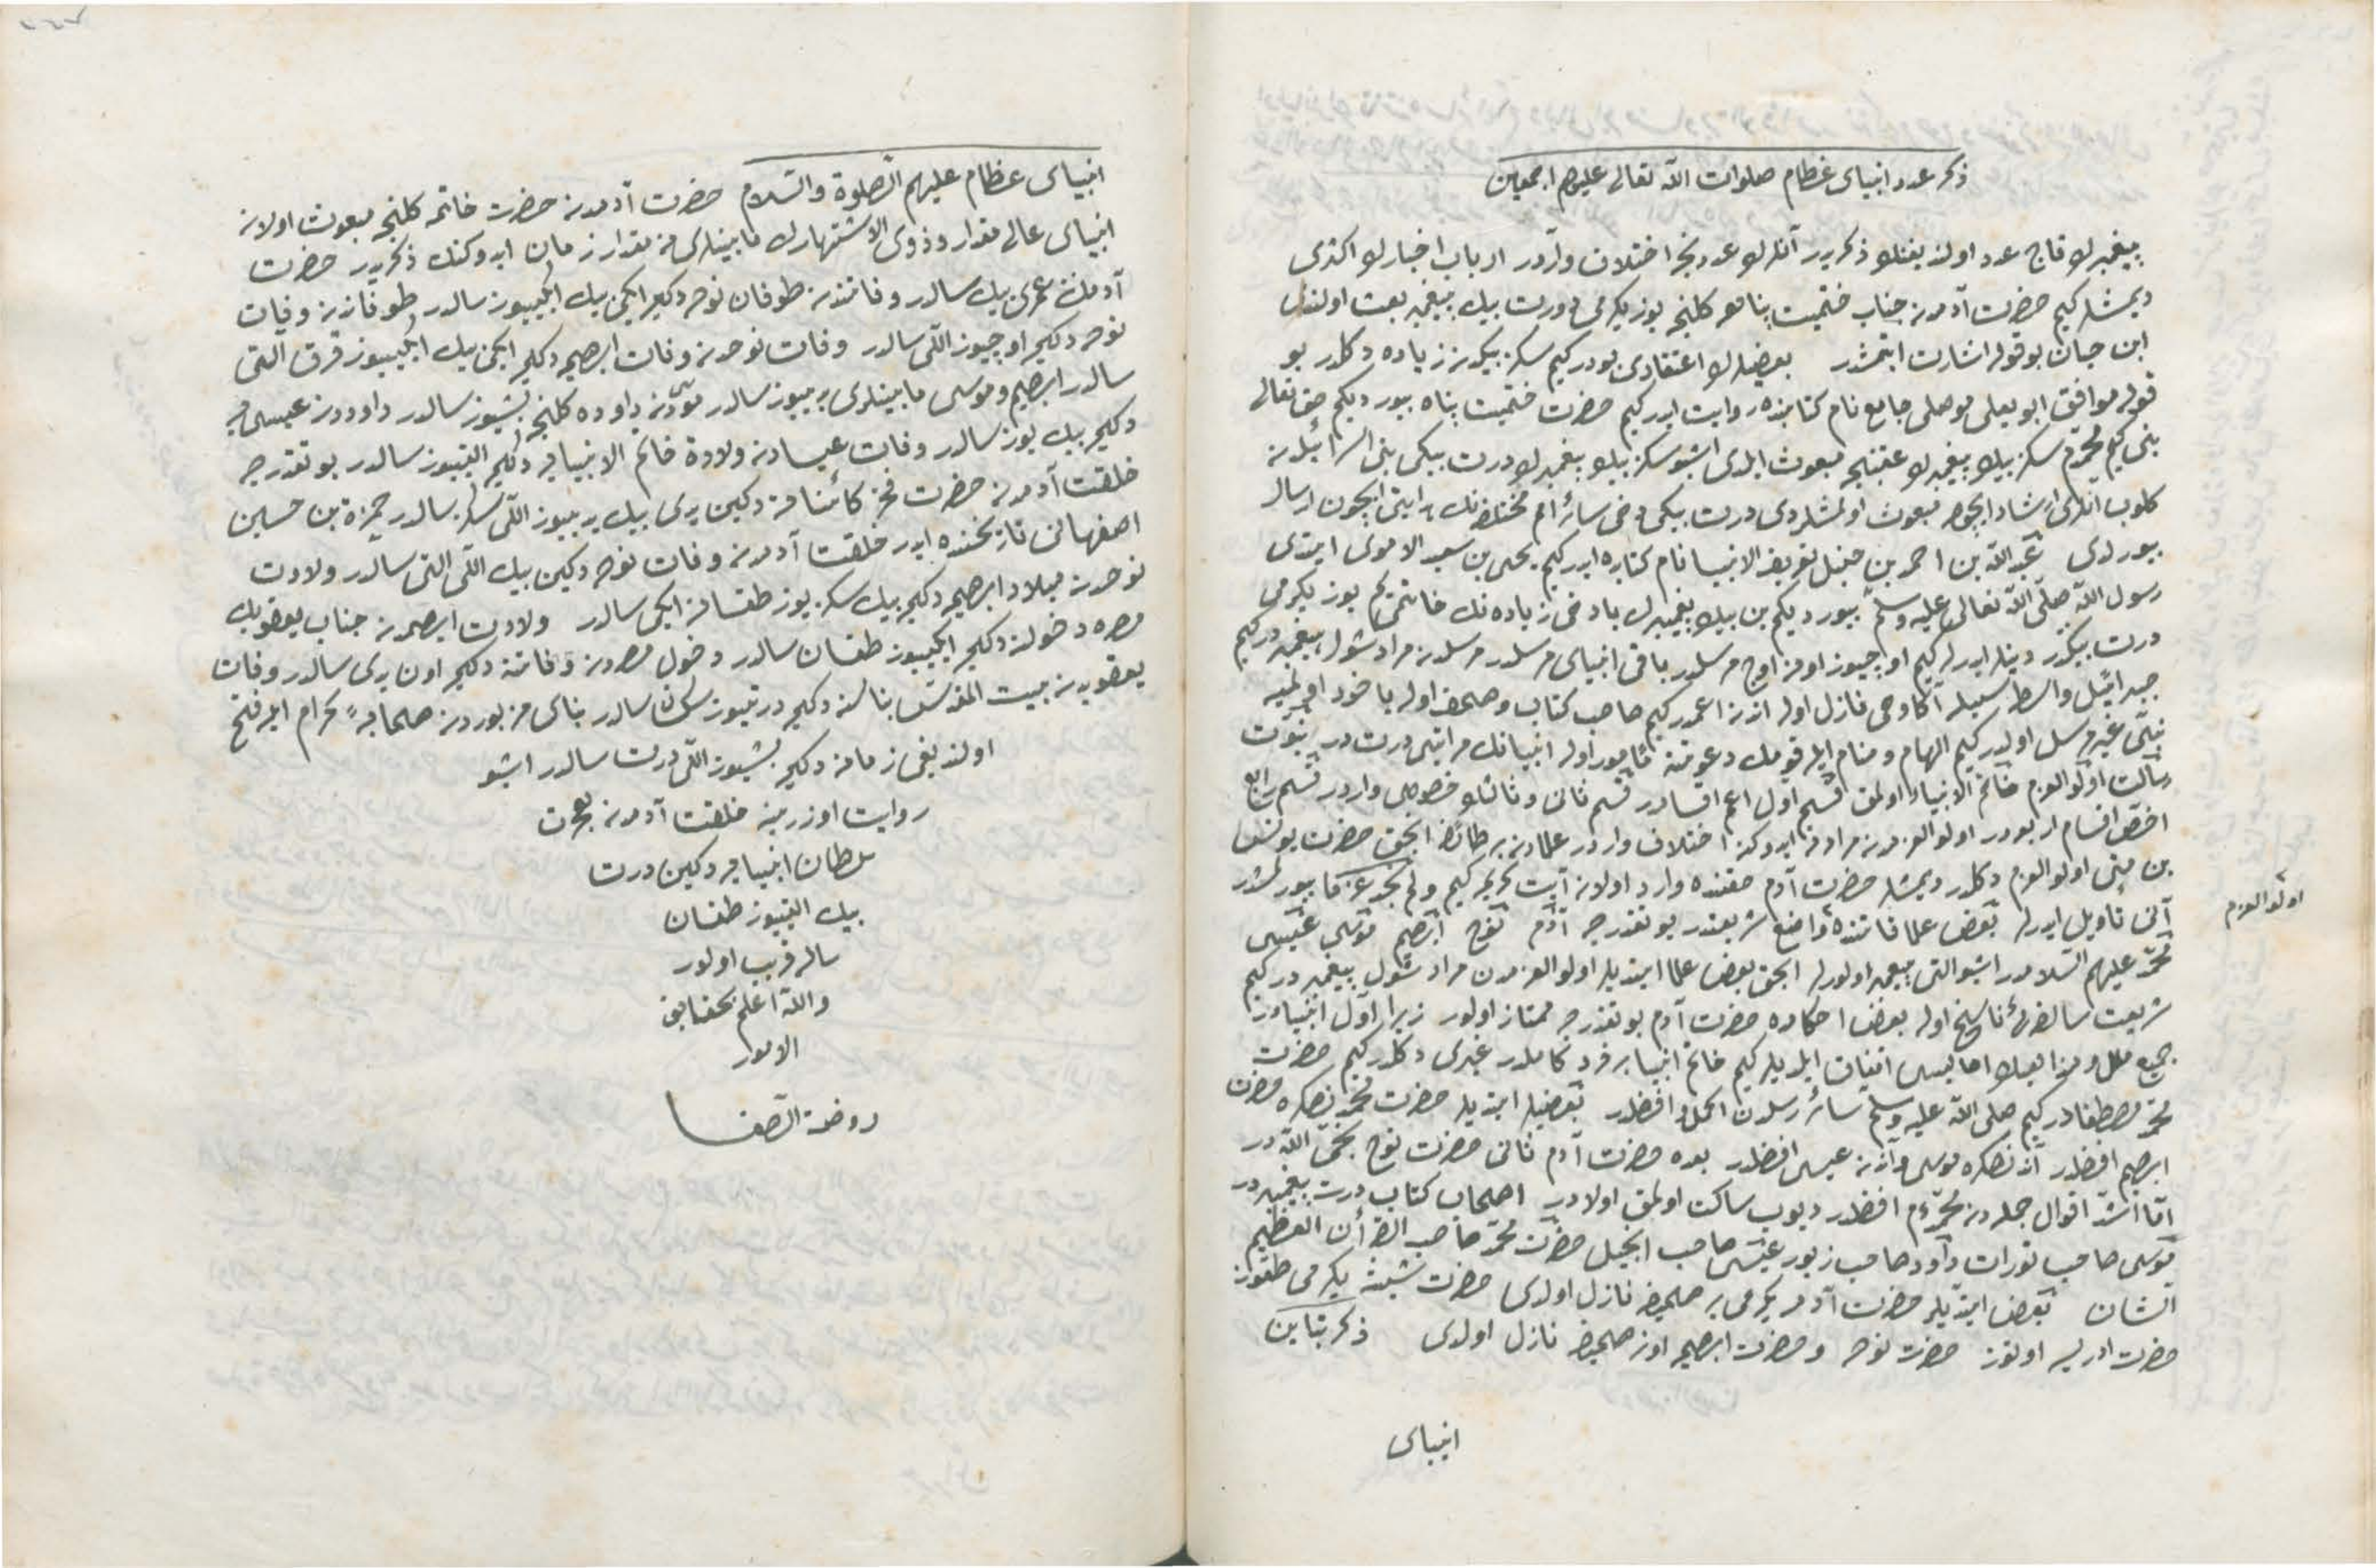 ذكر عدد انبیای عظام صلوات اللّه تعالی علیهم اجمعین
پیغمبرلر قاچ عدد اولدیغنك ذكریدر آنلرك عددنجه اختلاف واردر ارباب اخبارك اكثری
دیمشلر كیم حضرت آدمدن جناب ختمیت پناهه كلنجه یوز یكرمی درت بیك پیغمبر بعث اولندی
ابن حبان بو قوله اشارت ایتمشدر بعضیلرك اعتقادی بودر كیم سكز بیكدن زیاده دكلدر بو
قوله موافق ابو یعلی موصلی جامع نام كتابنده روایت ایدر كیم حضرت ختمیت پناه بیوردیكم حق تعالی
بنی كیم محمدم سكز بیك پیغمبرلر عقبنجه مبعوث ایلدی اشبو سكز بیك پیغمبرلر درت بیكی بنی اسرائیلدن
كلوب انلری ارشاد ایچون مبعوث اولمشلردی درت بیكی دخی سائر امم مختلفه نك هدایتی ایچون ارسال
بیوردی عبد اللّه بن احمد بن حنبل تعریف الانبیا نام كتابده ایدر كیم یحیی بن سعید الاموی ایتدی
رسول اللّه صلی اللّه تعالی علیه وسلم بیوردیكم بن بیك پیغمبرك یا دخی زیاده نك خاتمی یم یوز یكرمی
درت بیكدر دینلر ایدرلر كیم اوچیوز اون اوچ مرسلدر باقی انبیای مرسلدر مرسلدن مراد شول پیغمبردر كیم
جبرائیل واسطه سیله آكا وحی نازل اوله اندن اعمدر كیم صاحب كتاب و صحف اوله یا خود اولمیه
نبی غیر مرسل اولدر كیم الهام و منام ایله قومك دعوتنه مأمور اوله انبیانك مراتبی درت در نبوت
رسالت اولو العزم خاتم الانبیاء اولمق قسم اول اعم اقسامدر قسم ثانی و ثالثك خصوصی واردر قسم رابع
اخص اقسام اربعه در اولو العزمدن مراد نه ایدوكنده اختلاف واردر علمادن بر طائفه انجق حضرت یونس
بن متی اولو العزم دكلدر دیمشلر حضرت آدم حقنده وارد اولان آیت كریمه كیم ولم نجد له عزما بیورلمشدر
آنی تأویل ایدرلر بعض علما قاتنده واضع شریعتدر بو تقدیرجه آدم نوح ابرهیم موسی عیسی
محمد علیهم السلامدر اشبو التی پیغمبر اولورلر انجق بعض علما ایتدیلر اولو العزمدن مراد شول پیغمبردر كیم
شریعت سالفه یی ناسخ اوله بعض احكامده حضرت آدم بو تقدیرجه ممتاز اولور زیرا اول انبیادر
جمیع ملل و مذاهبك اهالیسی اتفاق ایلدیلر كیم خاتم انبیا بر فرد كاملدر غیری دكلدر كیم حضرت
محمد مصطفادر كیم صلی اللّه علیه وسلم سائر رسلدن اكمل و افضلدر بعضیلر ایتدیلر حضرت محمدنصكره حضرت
ابرهیم افضلدر آندنصكره موسی و آندن عیسی افضلدر بعده حضرت آدم ثانی حضرت نوح نجی اللّه در
اما اشد اقوال جمله دن محمد م افضلدر دیوب ساكت اولمق اولادر اصحاب كتاب درت پیغمبردر
موسی صاحب تورات داود صاحب زبور عیسی صاحب انجیل حضرت محمد صاحب القرأن العظیم
الشان بعض ایتدیلر حضرت آدمه یكرمی بر صحیفه نازل اولدی حضرت شیثه یكرمی طقوز
حضرت ادریسه اوتوز حضرت نوحه و حضرت ابرهیمه اون صحیفه نازل اولدی ذكر تباین
اولو العزم
انبیای
انبیای عظام علیهم الصلوة والسلام حضرت آدمدن حضرت خاتمه كلنجه مبعوث اولان
انبیای عالی مقدار و ذوی الاشتهارك مابینلری نه مقدار زمان ایدوكنك ذكریدر حضرت
آدمك عمری بیك سالدر وفاتندن طوفان نوحه دكین ایكی بیك ایكییوز سالدر طوفاندن وفات
نوحه دكین اوچیوز اللی سالدر وفات نوحدن وفات ابرهیمه دكین ایكی بیك ایكییوز قرق التی
سالدر ابرهیم و موسی مابینلری یدییوز سالدر موسیدن داوده كلنجه بشیوز سالدر داوددن عیسی یه
دكین بیك یوز سالدر وفات عیسادن ولادة خاتم الانبیایه دكین التییوز سالدر بو تقدیرجه
خلقت آدمدن حضرت فخر كائناته دكین یدی بیك یدییوز اللی سكز سالدر حمزه بن حسین
اصفهانی تاریخنده ایدر خلقت آدمدن وفات نوحه دكین بیك اللی التی سالدر ولادت
نوحدن میلاد ابرهیمه دكین بیك سكز یوز طقسان ایكی سالدر ولادت ابرهیمدن جناب یعقوبك
مصره دخولنه دكین ایكییوز طقسان سالدر دخول مصردن وفاتنه دكین اون یدی سالدر وفات
یعقوبدن بیت المقدس بناسنه دكین درتیوز سكسان سالدر بنای مزبوردن صحابه كرام ایله فتح
اولندیغی زمانه دكین بشیوز اللی درت سالدر اشبو
روایت اوزرینه خلقت آدمدن هجرت
سلطان انبیایه دكین درت
بیك التییوز طقسان
ساله قریب اولور
واللّه اعلم بحقایق
الامور
روضة الصفا